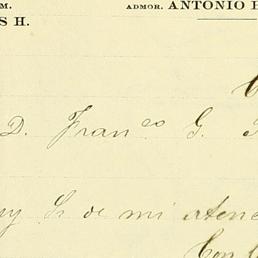 M. ADMOR. ANTONIO
S H.
D. Fran.co G.
Sr de mi aten
Con